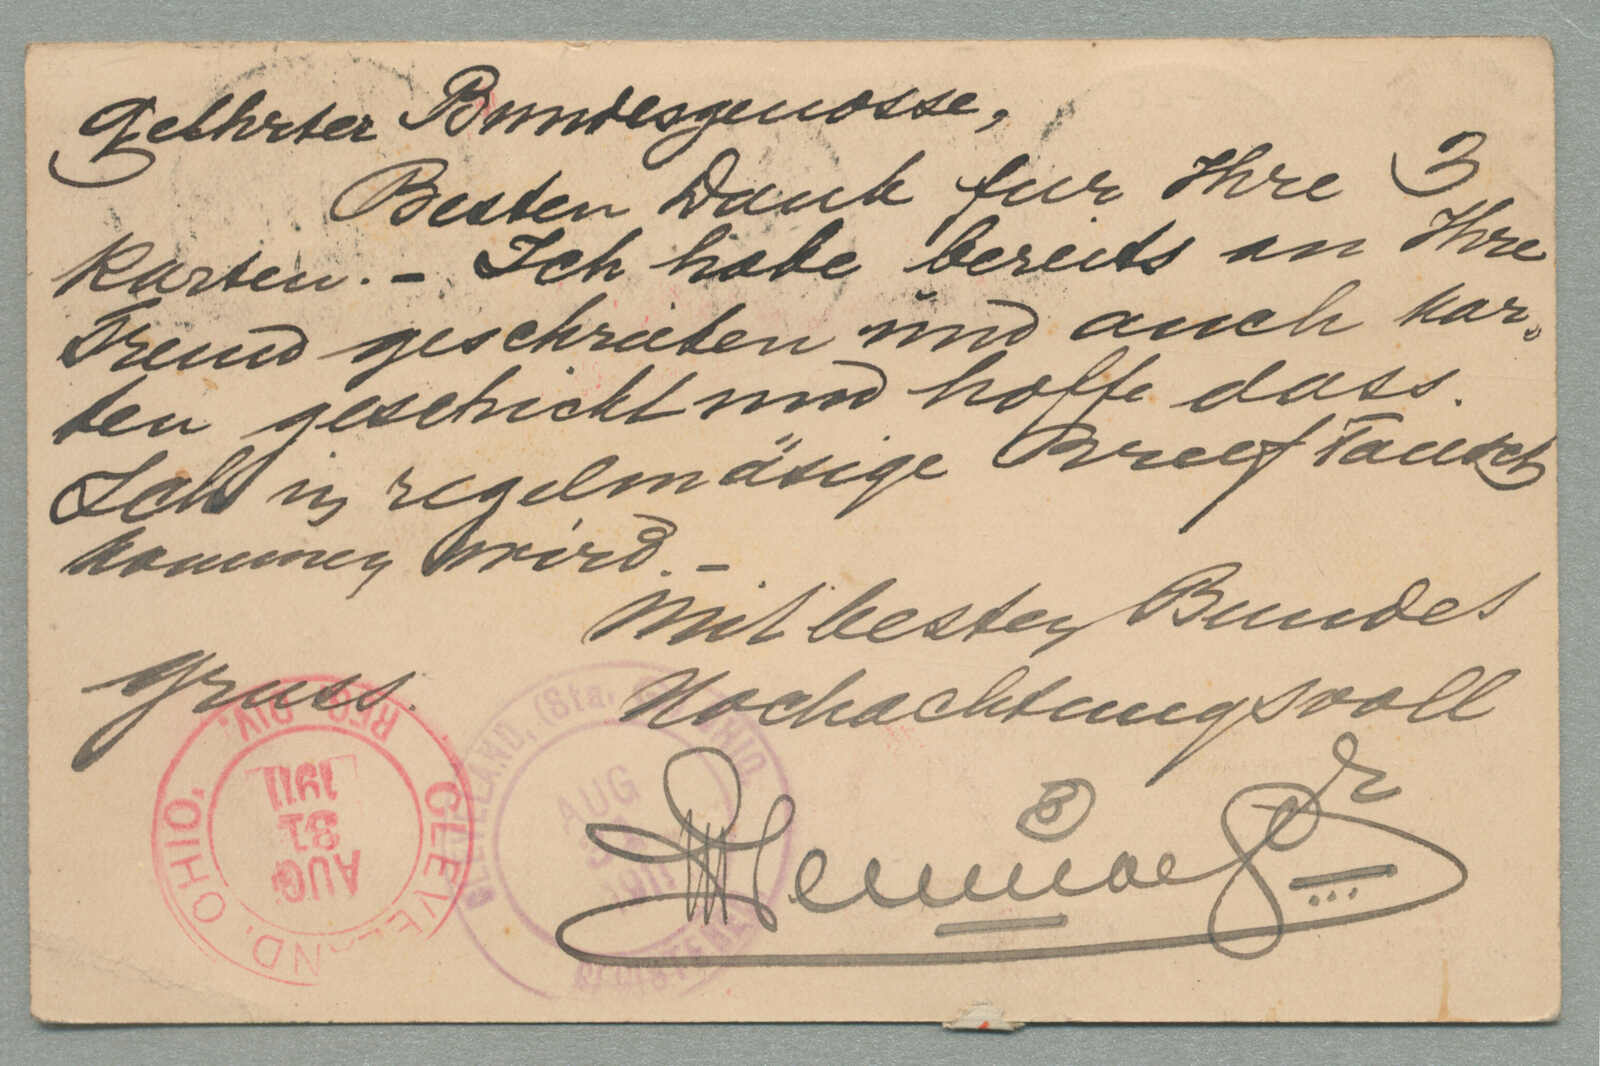 Geehrter Bundesgenosse,
Besten Dank fur Ihre 3
Karten. - Ich habe bereits an Ihre
Freund geschrieben und auch Kar-
ten geschickt und hoffe dass.
Ich in regelmäsige Brief Tausch
kommen wird. -
Mit besten Bundes
gruss.
Hochachtungsvoll
CLEVELAND, OHIO.
REG. DIV.
AUG
31
1911
CLEVELAND, (Sta. OHIO.
AUG
31
1911
REGISTERED